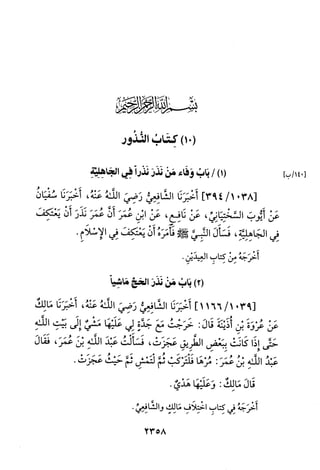 بسم الله الرحمن الرحيم
(١٠) كِتَابُ النُّذُور
(١) / بَابُ وَفَاء مَنْ نَذَرَ نَذْراً فِي الجَاهِلِيَّة [١٤٠/ب]
[٣٩٤/١٠٣٨] أَخْبَرَنَا الشَّافِعِيُّ رَضِيَ اللَّهُ عَنْهُ، أَخْبَرَنَا سُفْيَانُ
عَنْ أَيُّوبَ السَّخْتِيَانِيِّ، عَنْ نَافِعٍ، عَنْ ابْنِ عُمَرَ أَنَّ عُمَرَ نَذَرَ أَنْ يَعْتَكِفَ
فِي الجَاهِلِيَّةِ، فَسَأَلَ النَّبِيَّ ﷺ فَأَمَرَهُ أَنْ يَعْتَكِفَ فِي الإِسْلَامِ.
أَخْرَجَهُ مِنْ كِتَابِ العِيدَيْنِ.
(٢) بَابُ مَنْ نَذَرَ الحَجَّ مَاشِياً
[١١٦٦/١٠٣٩] أَخْبَرَنَا الشَّافِعِيُّ رَضِيَ اللَّهُ عَنْهُ، أَخْبَرَنَا مَالِكٌ
عَنْ عُرْوَةَ بْنِ أُذَيْنَةَ قَالَ: خَرَجْتُ مَعَ جَدَّةٍ لِي عَلَيْهَا مَشْيٌ إِلَى بَيْتِ اللَّهِ
حَتَّى إِذَا كَانَتْ بِبَعْضِ الطَّرِيقِ عَجَزَتْ، فَسَأَلْتُ عَبْدَ اللَّهِ بْنَ عُمَرَ، فَقَالَ
عَبْدُ اللَّهِ بْنُ عُمَرَ: مُرْهَا فَلْتَرْكَبْ ثُمَّ لْتَمْشِ ثُمَّ حَيْثُ عَجَزَتْ.
قَالَ مَالِكٌ: وَعَلَيْهَا هَدْيٌ.
أَخْرَجَهُ فِي كِتَابِ اخْتِلَافِ مَالِكٍ وَالشَّافِعِيِّ.
٢٣٥٨